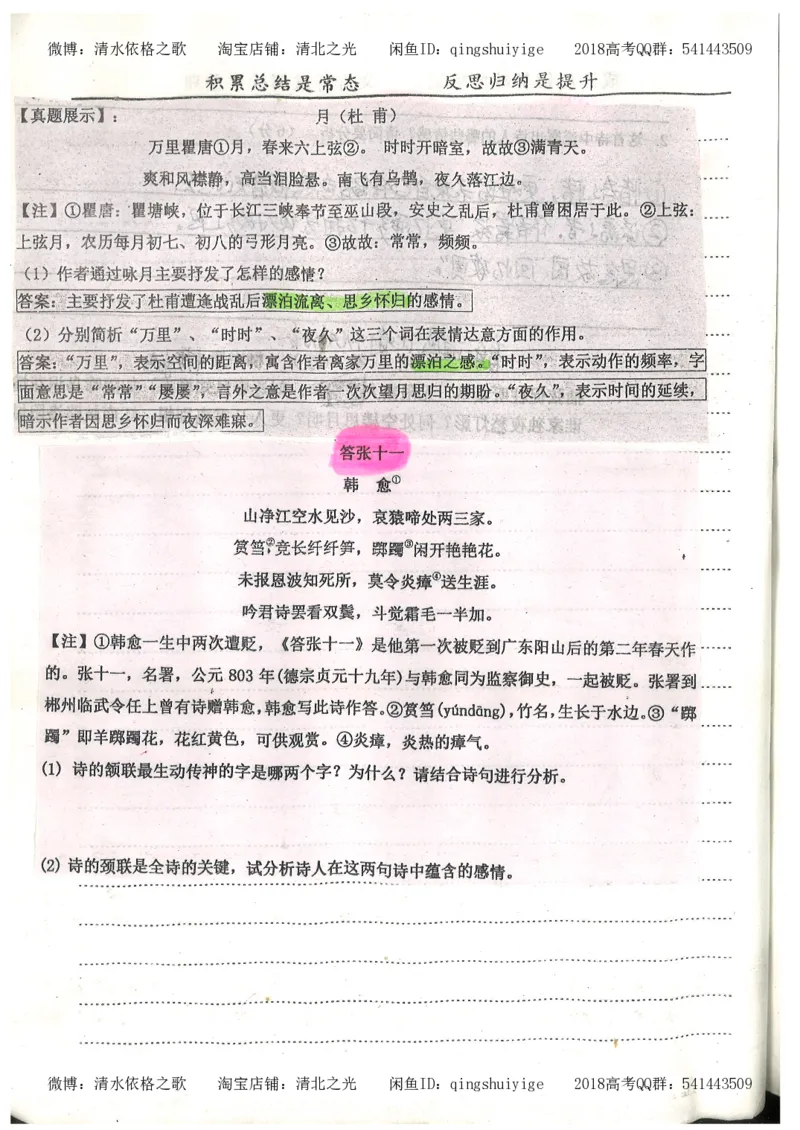 微博：清水依格之歌 淘宝店铺：清北之光 闲鱼ID：qingshuiyige 2018高考QQ群：541443509
积累总结是常态 反思归纳是提升
【真题展示】： 月（杜 甫）
万里瞿唐①月，春来六上弦②。 时时开暗室，故故③满青天。
爽和风襟静，高当泪脸悬。南飞有乌鹊，夜久落江边。
【注】①瞿唐：瞿塘峡，位于长江三峡奉节至巫山段，安史之乱后，杜甫曾困居于此。②上弦：
上弦月，农历每月初七、初八的弓形月亮。③故故：常常，频频。
（1）作者通过咏月主要抒发了怎样的感情？
答案：主要抒发了杜甫遭逢战乱后漂泊流离、思乡怀归的感情。
（2）分别简析“万里”、“时时”、“夜久”这三个词在表情达意方面的作用。
答案：“万里”，表示空间的距离，寓含作者离家万里的漂泊之感。“时时”，表示动作的频率，字
面意思是“常常”“屡屡”，言外之意是作者一次次望月思归的期盼。“夜久”，表示时间的延续，
暗示作者因思乡怀归而夜深难寐。
答张十一
韩 愈①
山净江空水见沙，哀猿啼处两三家。
筼筜②竞长纤纤笋，踯躅③闲开艳艳花。
未报恩波知死所，莫令炎瘴④送生涯。
吟君诗罢看双鬓，斗觉霜毛一半加。
【注】①韩愈一生中两次遭贬，《答张十一》是他第一次被贬到广东阳山后的第二年春天作
的。张十一，名署，公元 803 年(德宗贞元十九年)与韩愈同为监察御史，一起被贬。张署到
郴州临武令任上曾有诗赠韩愈，韩愈写此诗作答。②筼筜(yúndāng)，竹名，生长于水边。③“踯
躅”即羊踯躅花，花红黄色，可供观赏。④炎瘴，炎热的瘴气。
(1) 诗的颔联最生动传神的字是哪两个字？为什么？请结合诗句进行分析。
(2) 诗的颈联是全诗的关键，试分析诗人在这两句诗中蕴含的感情。
微博：清水依格之歌 淘宝店铺：清北之光 闲鱼ID：qingshuiyige 2018高考QQ群：541443509